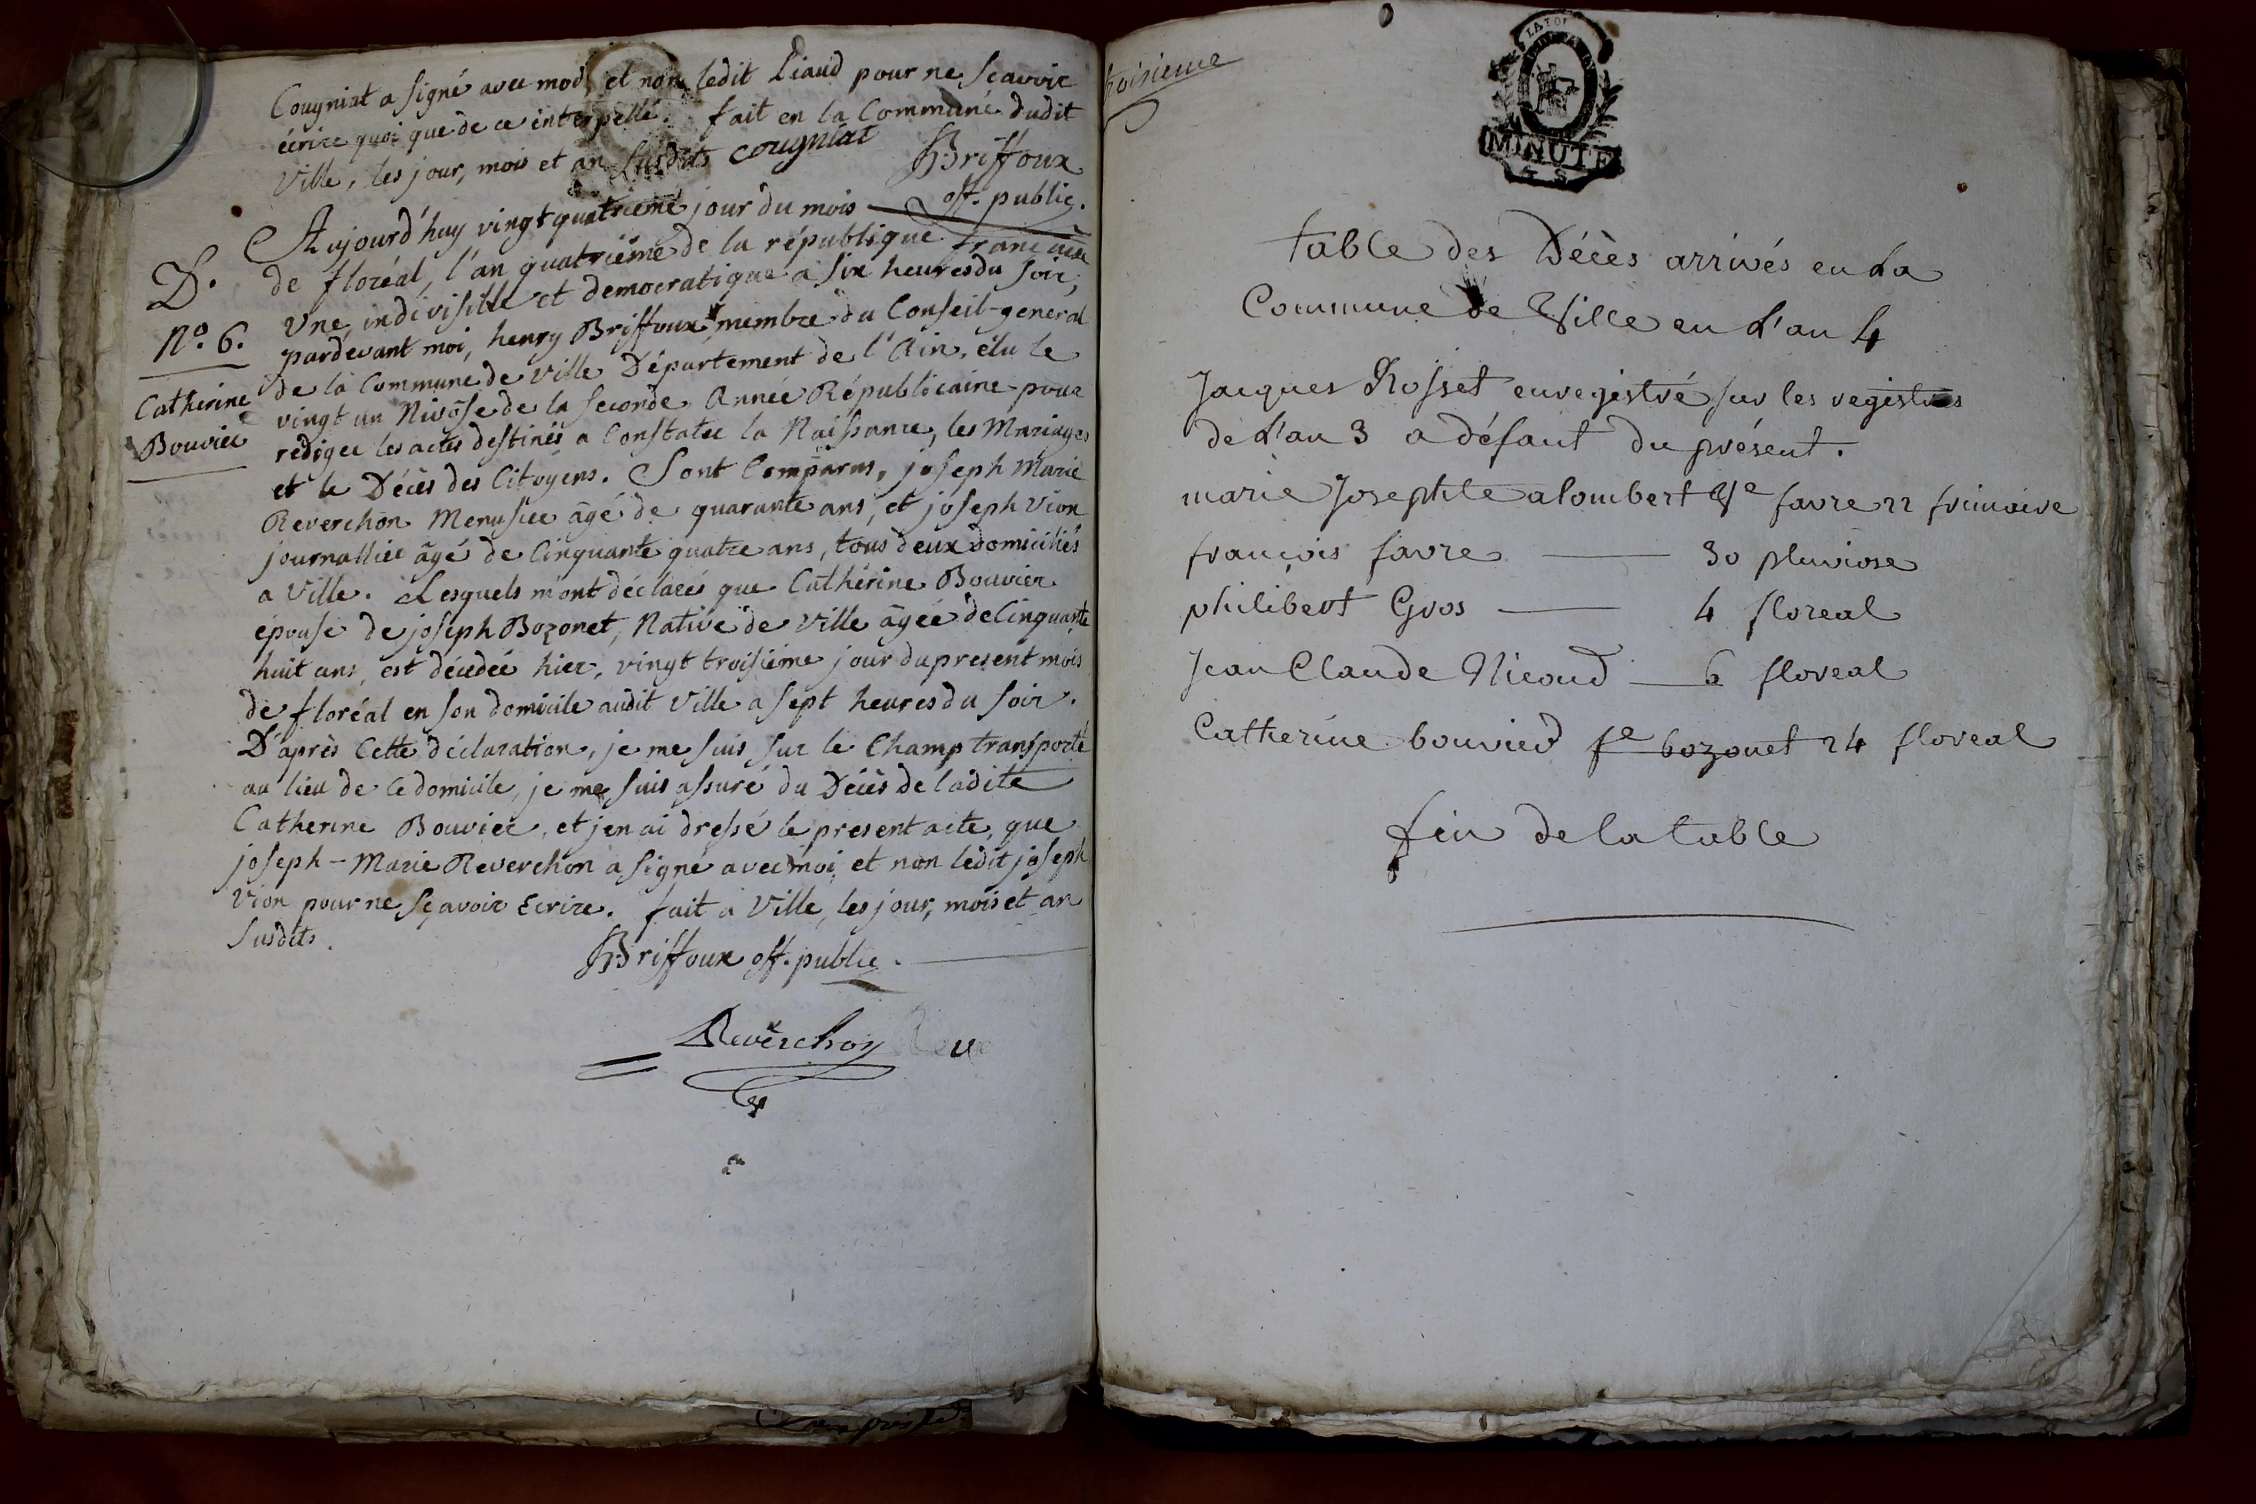 Cougniat a signé avec moi et non ledit Liaud pour ne sçavoir
écrire quoi que de ce interpellé. fait en la Commune dudit
Ville, les jour, mois et an susdits cougniat
HBriffoux
off. public.
D.
N.o 6.
Catherine
Bouvier
Aujourd'huy vingt quatrieme jour du mois
de floréal, l'an quatrième de la république française
Une, indivisible et democratique a six heures du soir,
pardevant moi, henry Briffoux, membre du Conseil-general
de la Commune de Ville Département de l'Ain, élu le
vingt un Nivôse de la seconde Année Républicaine pour
rediger les actes destinés a Constater la Naissance, les Mariages
et le Décès des Citoyens. Sont Comparus, joseph Marie
Reverchon Menusier âgé de quarante ans, et joseph Vion
journallier âgé de Cinquante quatre ans, tous deux domiciliés
a Ville. Lesquels m'ont déclaré que Cathérine Bouvier
épouse de joseph Bozonet, Native de Ville âgée de Cinquante
huit ans, est décedée hier, vingt troisiéme jour du present mois
de floréal en son domicile audit Ville a sept heures du soir.
D'après Cette déclaration, je me suis sur le Champ transporté
au lieu de ce domicile, je me suis assuré du Décès de ladite
Catherine Bouvier, et j'en ai dressé le present acte, que
joseph-Marie Reverchon a signé avec moi et non ledit joseph
Vion pour ne sçavoir Ecrire. fait a Ville, les jour, mois et an
susdits.
HBriffoux off. public.
Reverchon
troisieme
MINUTE
table des Décès arrivés en La
Commune de Ville en L'an 4
Jacques Rosset enregistré sur les registres
de L'an 3 a défaut du présent.
marie Josephte alombert fe favre 22 frimaire
françois favre — 30 pluviose
philibert Gros — 4 floreal
Jean Claude Nicoud — 6 floreal
Catherine bouvier fe bozonet 24 floreal
fin de la table